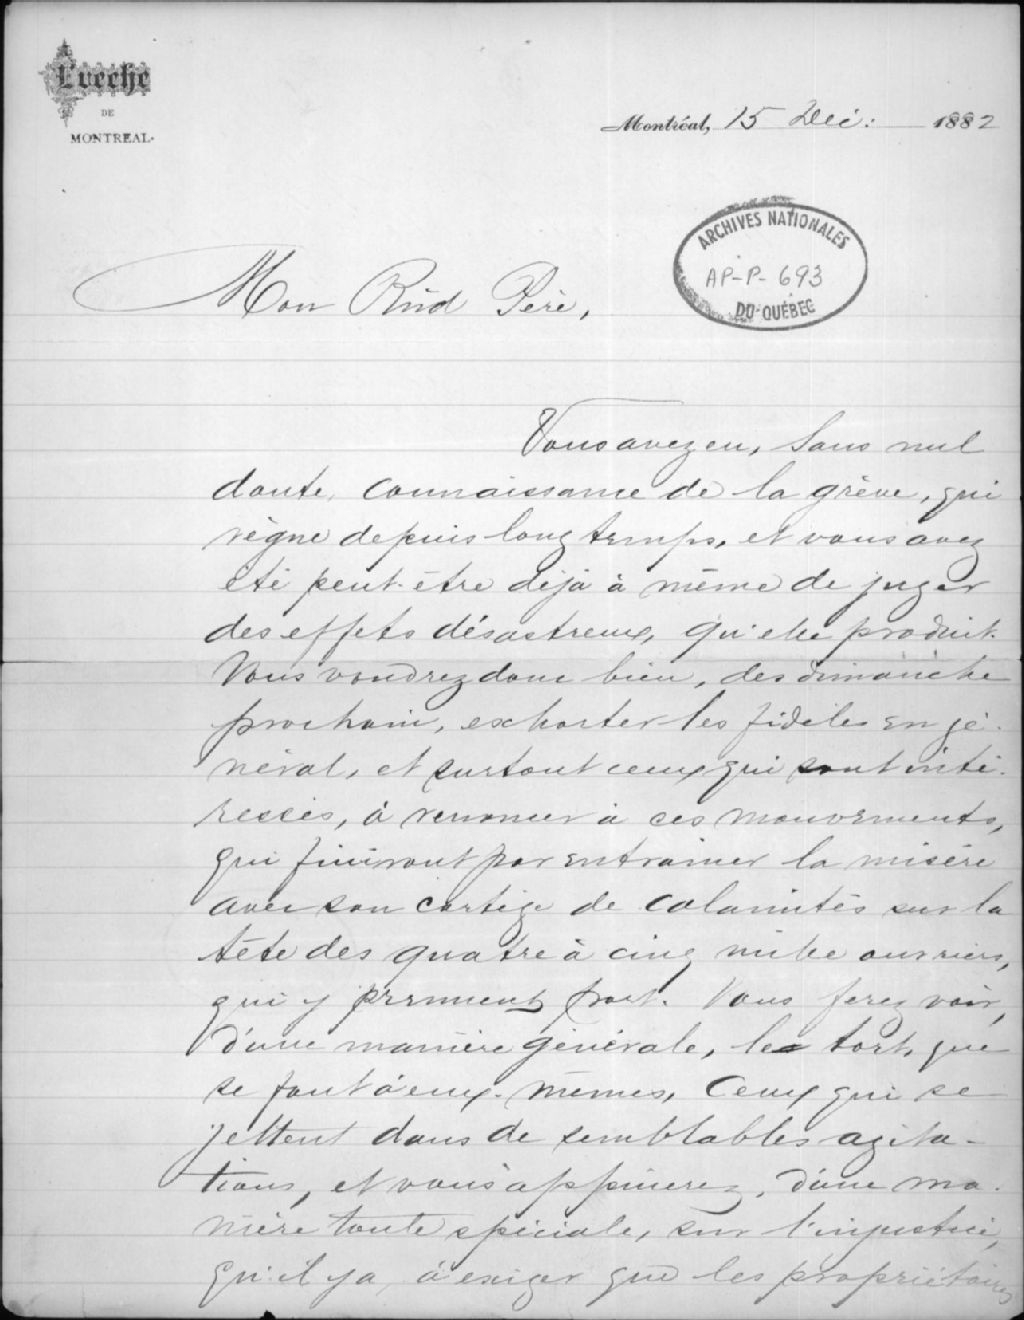 Evêché
DE
MONTREAL.
Montréal, 15 Déc: 1882
ARCHIVES NATIONALES
AP-P-693
DU QUÉBEC
Mon Rvd Père,
Vous avez eu, sans nul
doute, connaissance de la grève, qui
règne depuis longtemps, et vous avez
été peut-être déjà à même de juger
des effets désastreux, qu'elle produit.
Vous voudrez donc bien, dès dimanche
prochain, exhorter les fidèles en gé-
néral, et surtout ceux qui sont inté-
ressés, à renoncer à ces mouvements,
qui finiront par entraîner la misère
avec son cortège de calamités sur la
tête des quatre à cinq mille ouvriers,
qui y prennent part. Vous ferez voir,
d'une manière générale, le tort, que
se font à eux-mêmes, ceux qui se
jettent dans de semblables agita-
tions, et vous appuierez, d'une ma-
nière toute spéciale, sur l'injustice,
qu'il y a, à exiger que les propriétaires